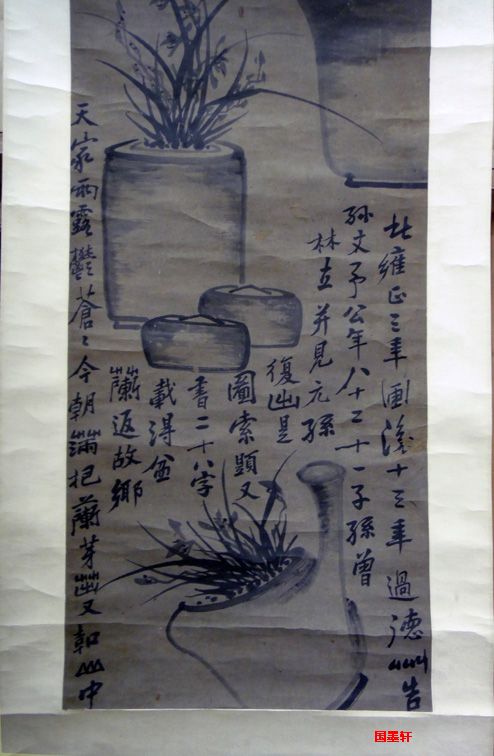 此雍正三年画後十三年過德州告
孫丈予公年八十二十一子孫曾
林立并見元孫
復出是
圖索題又
書二十八字
載得盆
蘭返故鄉
天家雨露鬱蒼〻今朝滿把蘭芽茁又和山中
国墨轩